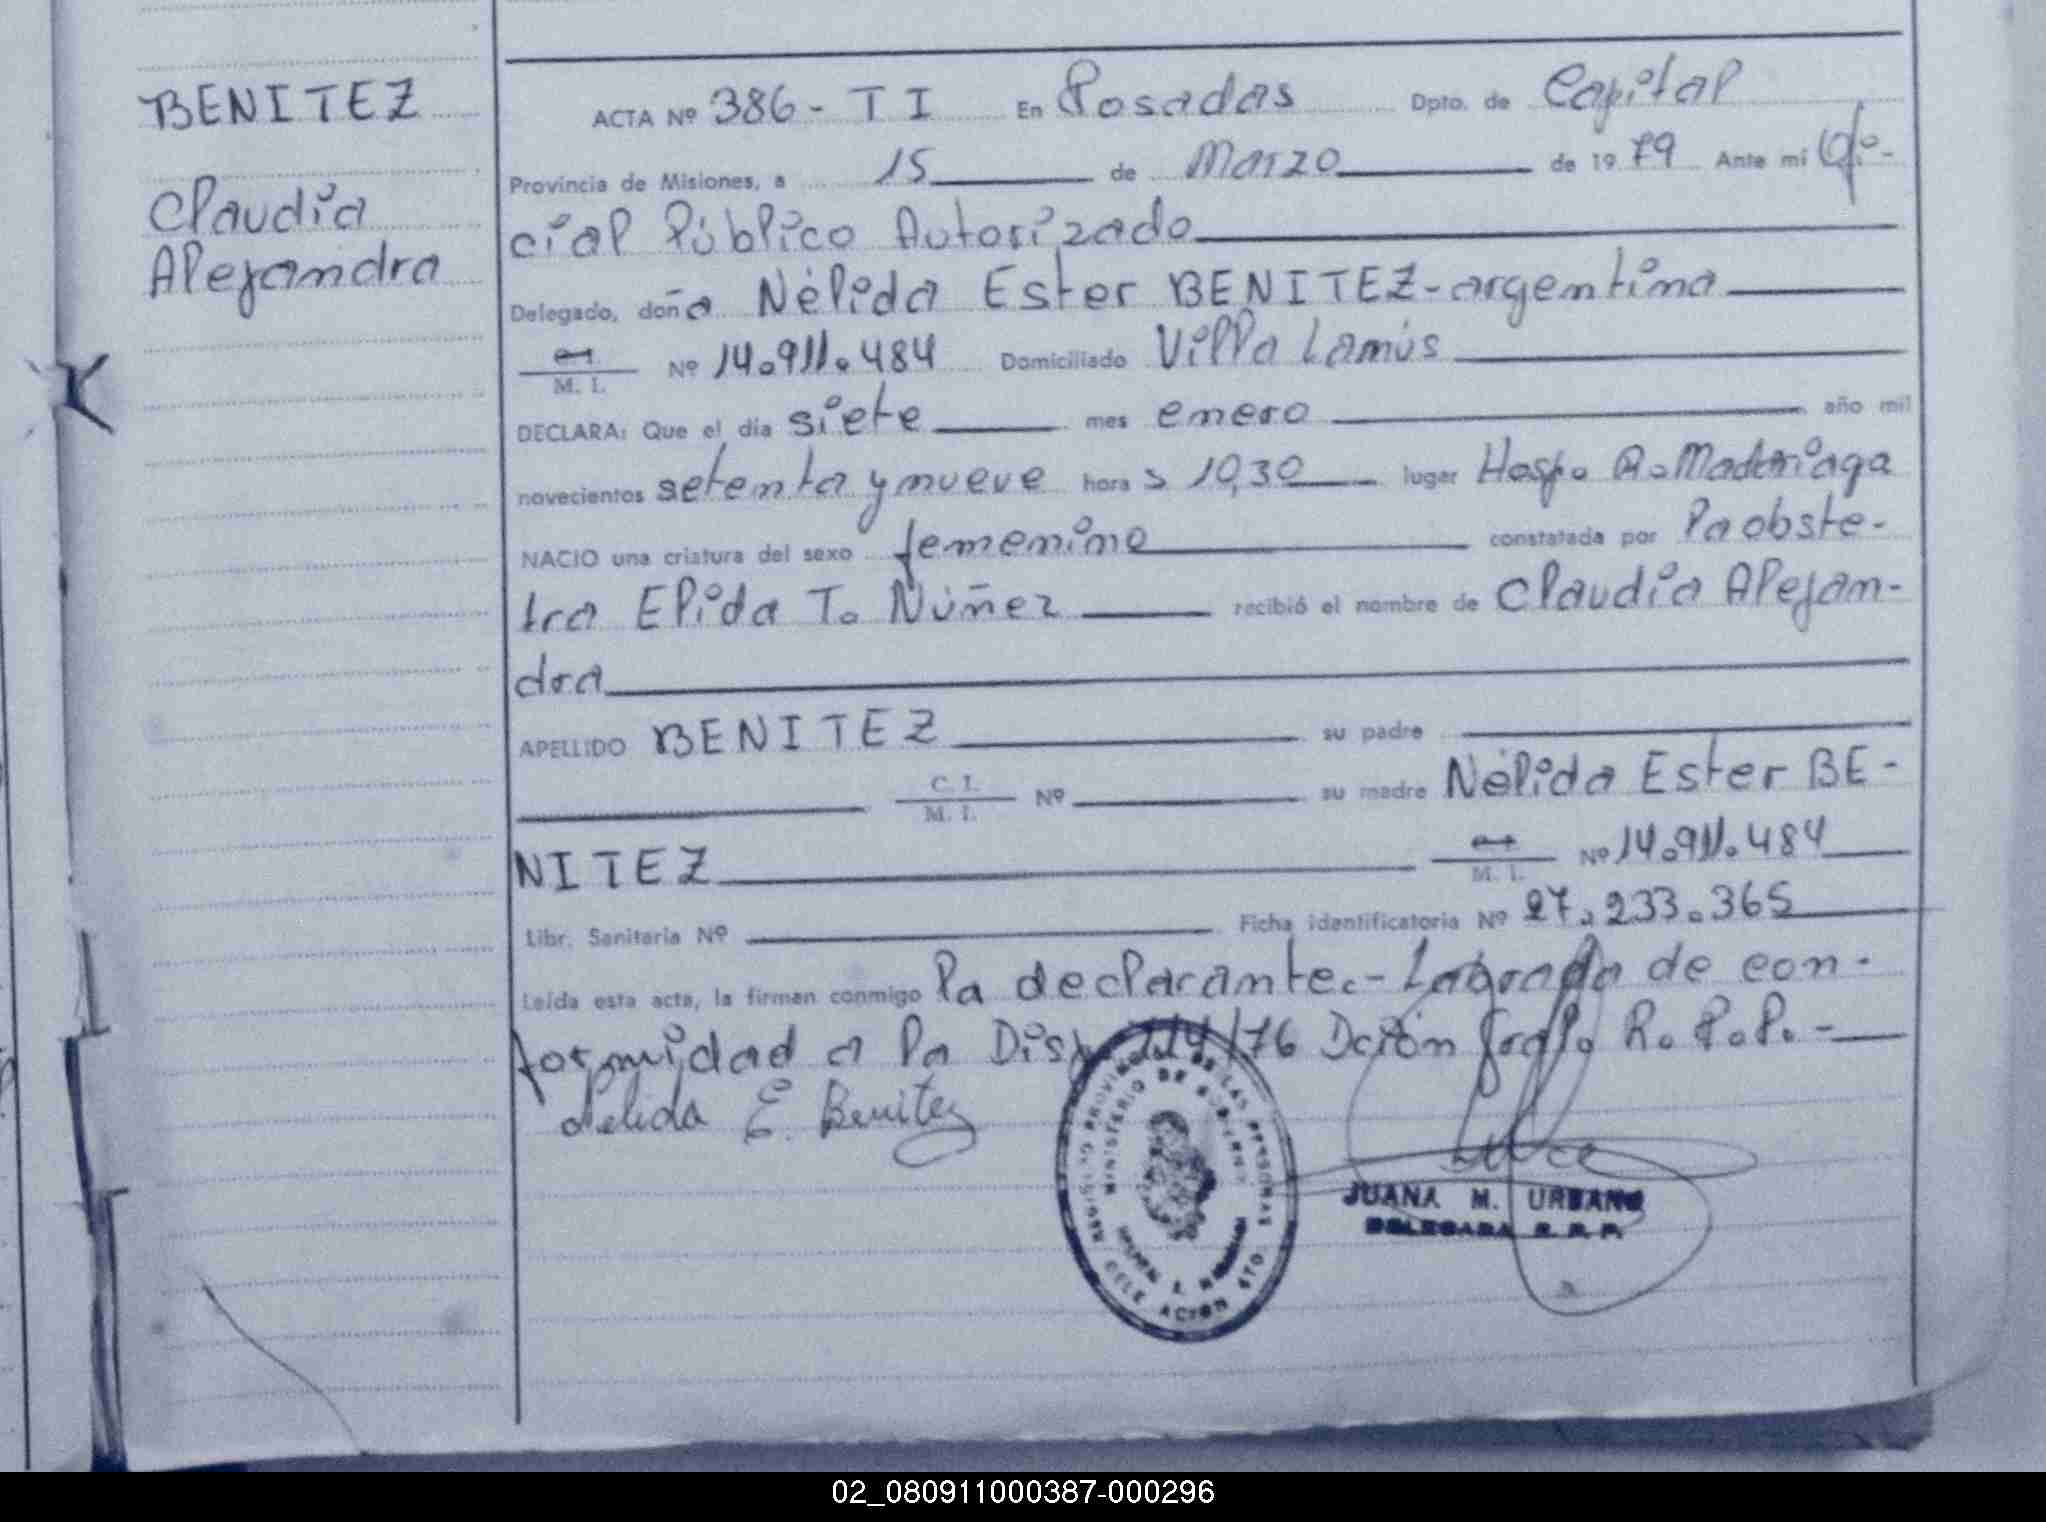 BENITEZ
Claudia
Alejandra
ACTA Nº 386- T I En Posadas Dpto. de Capital
Provincia de Misiones, a 15 de Marzo de 1979 Ante mi Ofi-
cial Público Autorizado
Delegado, doña Nélida Ester BENITEZ-argentina
M. I. Nº 14.911.484 Domiciliado Villa Lanús
DECLARA: Que el dia siete mes enero año mil
novecientos setenta y nueve horas 10,30 lugar Hosp. R. Madariaga
NACIO una criatura del sexo femenino constatada por la obste-
tra Elida T. Núñez recibió el nombre de Claudia Alejan-
dra
APELLIDO BENITEZ su padre
C. I. M. I. Nº su madre Nélida Ester BE-
NITEZ M. I. Nº 14.911.484
Libr. Sanitaria Nº Ficha identificatoria Nº 27.233.365
Leída esta acta, la firman conmigo la declarante.- Labrada de con-
formidad a la Disp. /76 Dción Gral. R. P. P. -
Nelida E. Benitez
PROVINCIAL DE LAS PERSONAS
MINISTERIO DE GOBIERNO
JUANA M. URBANO
DELEGADA R. P. P.
02_080911000387-000296